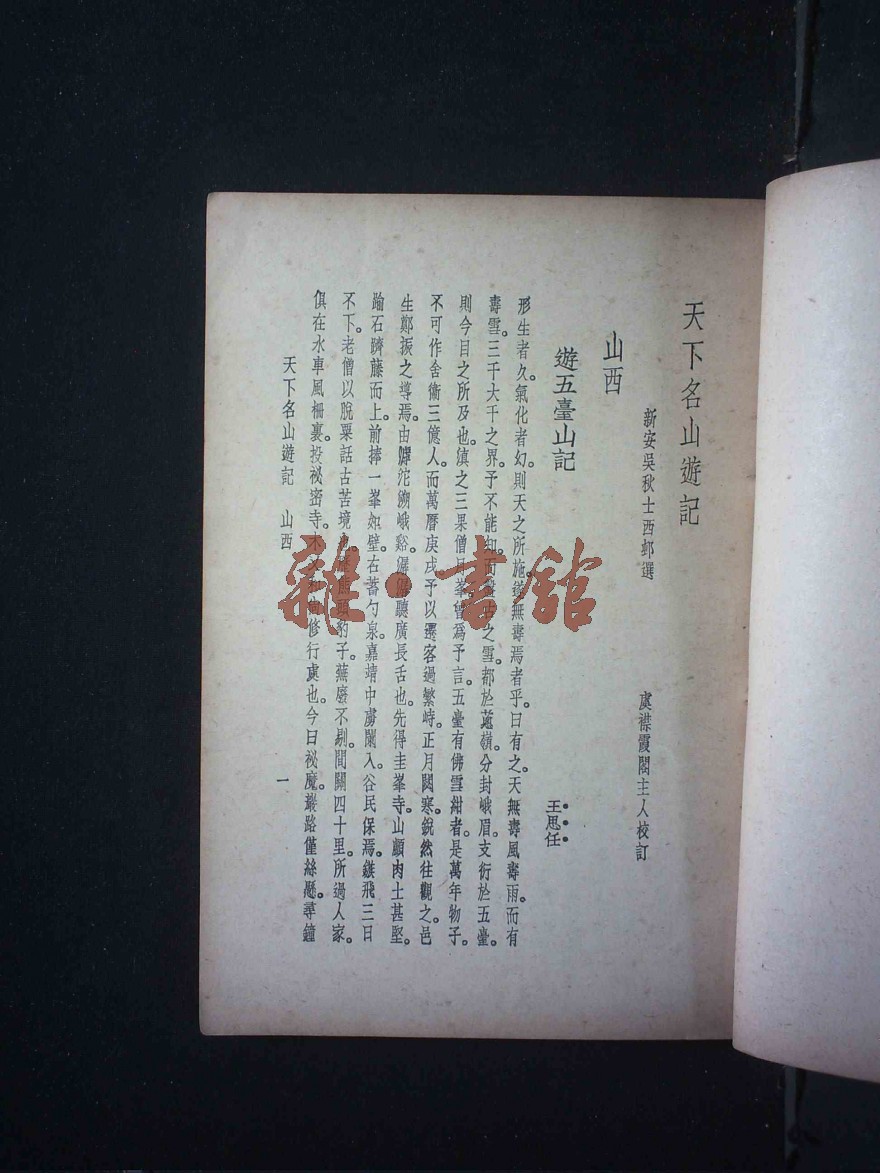 天下名山遊記
新安吳秋士西邨選
虞襟霞閣主人校訂
山西
遊五臺山記
王思任
形生者久。氣化者幻。則天之所施。鐩無壽焉者乎。曰有之。天無壽風壽雨。而有
壽雪。三千大千之界。予不能知。而之雪。都於蔥嶺。分封峨眉。支衍於五臺。
則今目之所及也。滇之三果僧月峯曾爲予言。五臺有佛雪紺者。是萬年物。予
不可作舍衞三億人。而萬曆庚戌。予以遷客過繁峙。正月闕寒。銳然往觀之。邑
生鄭振之導焉。由滹沱溯峨谿。潺潺聽廣長舌也。先得圭峯寺。山顱肉土甚堅。
踰石躋藤而上。前捧一峯如壁。右蓄勺泉。嘉靖中虜闌入。谷民保焉。鏃飛三日
不下。老僧以脫粟話古苦境。頭豹子。蕪廢不剔。間關四十里。所過人家。
俱在水車風柵裏。投祕密寺。木叉和尚修行處也。今曰祕魔巖。路僅絲懸。尋鐘
天下名山遊記　山西
一
雜·書館